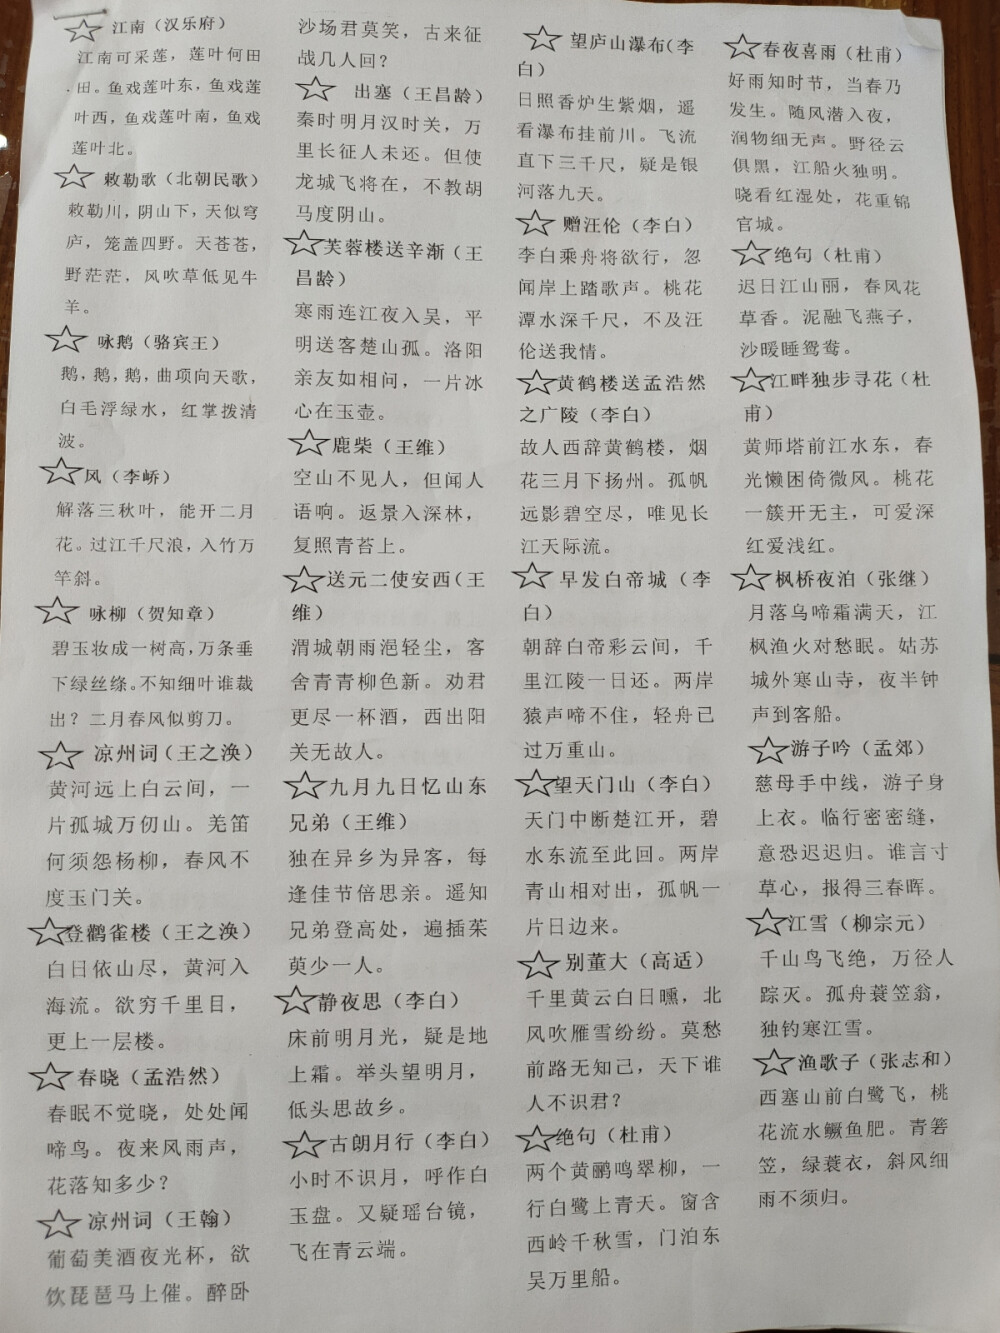 江南（汉乐府）
江南可采莲，莲叶何田
田。鱼戏莲叶东，鱼戏莲
叶西，鱼戏莲叶南，鱼戏
莲叶北。
敕勒歌（北朝民歌）
敕勒川，阴山下，天似穹
庐，笼盖四野。天苍苍，
野茫茫，风吹草低见牛
羊。
咏鹅（骆宾王）
鹅，鹅，鹅，曲项向天歌，
白毛浮绿水，红掌拨清
波。
风（李峤）
解落三秋叶，能开二月
花。过江千尺浪，入竹万
竿斜。
咏柳（贺知章）
碧玉妆成一树高，万条垂
下绿丝绦。不知细叶谁裁
出？二月春风似剪刀。
凉州词（王之涣）
黄河远上白云间，一
片孤城万仞山。羌笛
何须怨杨柳，春风不
度玉门关。
登鹳雀楼（王之涣）
白日依山尽，黄河入
海流。欲穷千里目，
更上一层楼。
春晓（孟浩然）
春眠不觉晓，处处闻
啼鸟。夜来风雨声，
花落知多少？
凉州词（王翰）
葡萄美酒夜光杯，欲
饮琵琶马上催。醉卧
沙场君莫笑，古来征
战几人回？
出塞（王昌龄）
秦时明月汉时关，万
里长征人未还。但使
龙城飞将在，不教胡
马度阴山。
芙蓉楼送辛渐（王
昌龄）
寒雨连江夜入吴，平
明送客楚山孤。洛阳
亲友如相问，一片冰
心在玉壶。
鹿柴（王维）
空山不见人，但闻人
语响。返景入深林，
复照青苔上。
送元二使安西（王
维）
渭城朝雨浥轻尘，客
舍青青柳色新。劝君
更尽一杯酒，西出阳
关无故人。
九月九日忆山东
兄弟（王维）
独在异乡为异客，每
逢佳节倍思亲。遥知
兄弟登高处，遍插茱
萸少一人。
静夜思（李白）
床前明月光，疑是地
上霜。举头望明月，
低头思故乡。
古朗月行（李白）
小时不识月，呼作白
玉盘。又疑瑶台镜，
飞在青云端。
望庐山瀑布（李
白）
日照香炉生紫烟，遥
看瀑布挂前川。飞流
直下三千尺，疑是银
河落九天。
赠汪伦（李白）
李白乘舟将欲行，忽
闻岸上踏歌声。桃花
潭水深千尺，不及汪
伦送我情。
黄鹤楼送孟浩然
之广陵（李白）
故人西辞黄鹤楼，烟
花三月下扬州。孤帆
远影碧空尽，唯见长
江天际流。
早发白帝城（李
白）
朝辞白帝彩云间，千
里江陵一日还。两岸
猿声啼不住，轻舟已
过万重山。
望天门山（李白）
天门中断楚江开，碧
水东流至此回。两岸
青山相对出，孤帆一
片日边来。
别董大（高适）
千里黄云白日曛，北
风吹雁雪纷纷。莫愁
前路无知己，天下谁
人不识君？
绝句（杜甫）
两个黄鹂鸣翠柳，一
行白鹭上青天。窗含
西岭千秋雪，门泊东
吴万里船。
春夜喜雨（杜甫）
好雨知时节，当春乃
发生。随风潜入夜，
润物细无声。野径云
俱黑，江船火独明。
晓看红湿处，花重锦
官城。
绝句（杜甫）
迟日江山丽，春风花
草香。泥融飞燕子，
沙暖睡鸳鸯。
江畔独步寻花（杜
甫）
黄师塔前江水东，春
光懒困倚微风。桃花
一簇开无主，可爱深
红爱浅红。
枫桥夜泊（张继）
月落乌啼霜满天，江
枫渔火对愁眠。姑苏
城外寒山寺，夜半钟
声到客船。
游子吟（孟郊）
慈母手中线，游子身
上衣。临行密密缝，
意恐迟迟归。谁言寸
草心，报得三春晖。
江雪（柳宗元）
千山鸟飞绝，万径人
踪灭。孤舟蓑笠翁，
独钓寒江雪。
渔歌子（张志和）
西塞山前白鹭飞，桃
花流水鳜鱼肥。青箬
笠，绿蓑衣，斜风细
雨不须归。